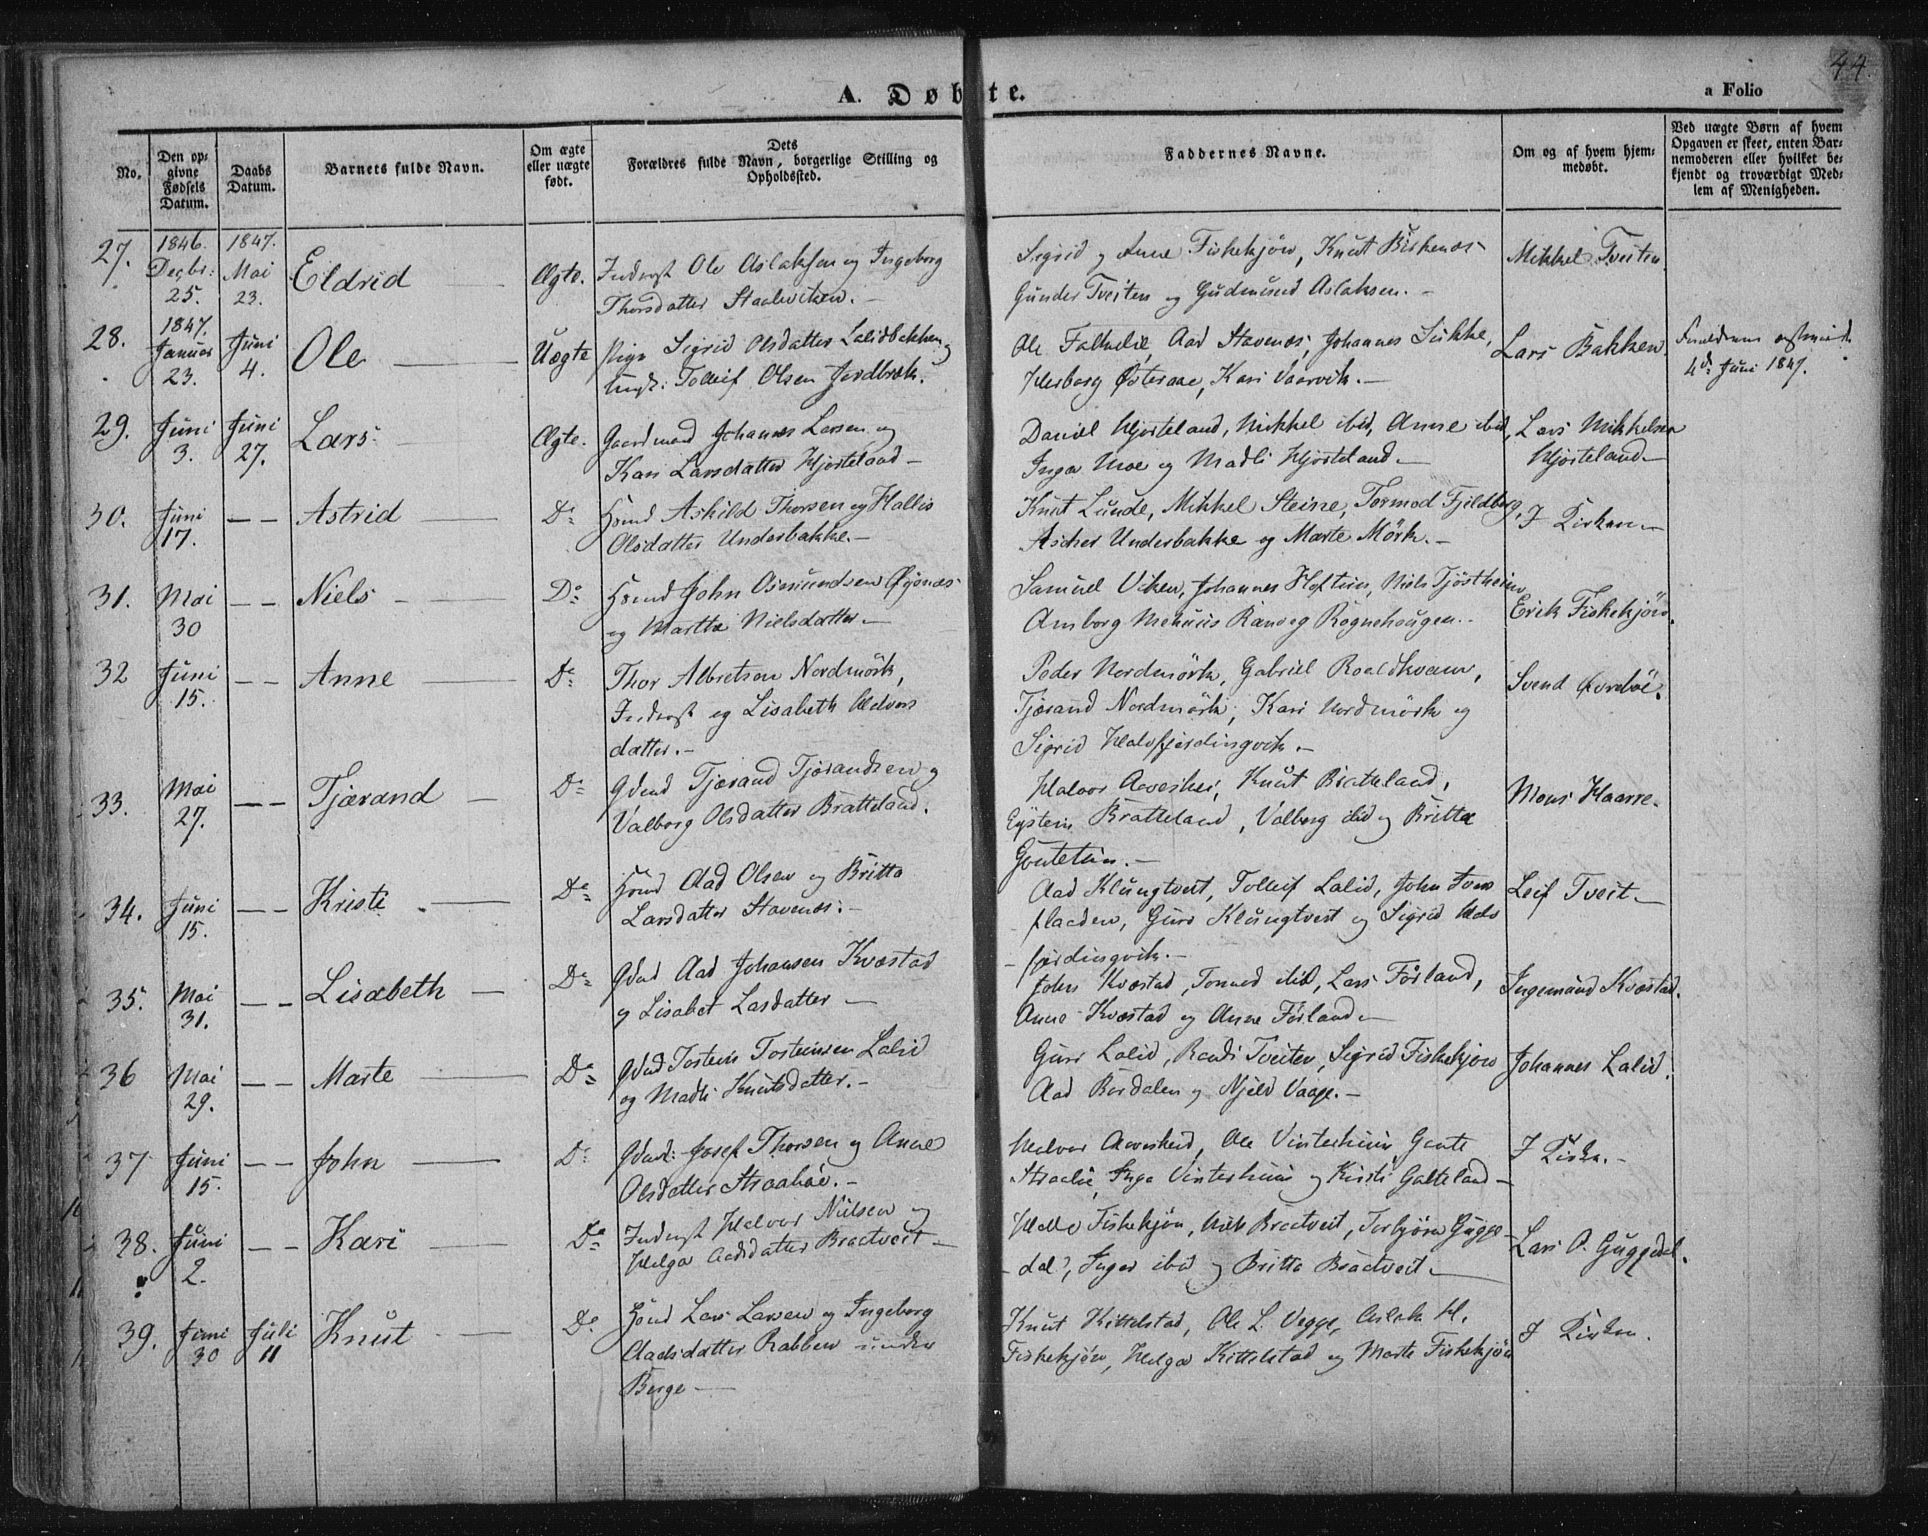 44.
A. Døbte.
a Folio
No.
Den op-
givne
Fødsels
Datum.
Daabs
Datum.
Barnets fulde Navn.
Om ægte
eller uægte
født.
Dets
Forældres fulde Navn, borgerlige Stilling og
Opholdssted.
Faddernes Navne.
Om og af hvem hjem-
medøbt.
Ved uægte Børn af hvem
Opgaven er skeet, enten Bar-
nemoderen eller hvilket be-
kjendt og troværdigt Med-
lem af Menigheden.
27. 1846. Decbr: 25. 1847. Mai 23. Eldrid Ægte. Inderst Ole Aslaksen og Ingeborg
Thorsdatter Staaleviken. –
Sigrid og Anne Fiskekjøn, Knut Birkenæs
Gunder Tveiten og Gudmund Aslaksen. –
Mikkel Tveiten
28. 1847. Januar 23. Juni 4. Ole Uægte Pige Sigrid Olsdatter Lalidbakken og
Ungk: Tolleif Olsen Jordbræk.
Ole Falkelie, Aad Stavenæs, Johannes Sukke,
Herborg Østeraae, Kari Vaarvik. –
Lars Bakken
4de Juni 1847.
29. Juni 3. Juni 27. Lars Ægte. Gaardmand Johannes Larsen og
Kari Larsdatter Hjorteland –
Daniel Hjorteland, Mikkel ibid, Anne ibid,
Inga Moe og Madli Hjorteland –
Lars Mikkelsen
Hjorteland –
30. Juni 17. – – Astrid Do Hsmd Askild Thorsen og Hallis
Olsdatter Underbakke. –
Knut Lunde, Mikkel Steine, Tormod Fjeldberg,
Ascher Underbakke og Marte Mörk. –
I Kirken –
31. Mai 30 – – Niels Do Hsmd John Osmundsen Øynæs
og Martha Nielsdatter –
Samuel Viken, Johannes Hoftun, Niels Tjöstheim,
Amborg Mehuus Ranveg Rognehougen.
Erik Fiskekjön.
32 Juni 15. – – Anne Do Thor Albretsen Nordmörk,
Inderst og Lisabeth Halvors
datter. –
Peder Nordmörk, Gabriel Roaldkvam,
Tjærand Nordmörk, Kari Nordmörk og
Sigrid Halvfjerdingvik. –
Svend
33. Mai 27. – – Tjærand Do Gdmd Tjærand Tjærandsen og
Valborg Olsdatter Bratteland.
Halvor Aareskei, Knut Bratteland,
Eystein Bratteland, Valborg ibid og Britta
Goutetun. –
Mons Haarre.
34. Juni 15. – – Kristi Do Hsmd Aad Olsen og Britta
Larsdatter Stavenæs. –
Aad Klungtveit, Tolleif Lalid, John Tvers
flaaden, Guro Klungtveit og Sigrid Halv
fjerdingvik. –
Leif Tveit –
35. Mai 31. – – Lisabeth Do Gdmd Aad Johansen Kvæstad
og Lisabet Larsdatter –
John Kvæstad, Tormod ibid, Lars Förland,
Anne Kvæstad og Anne Förland –
Ingemund Kvæstad.
36 Mai 29. – – Marte Do Gdmd Tostein Tosteinsen Lalid
og Madli Knutsdatter. –
Guro Lalid, Randi Tveiten, Sigrid Fiskekjön
Aad Bordalen og Njeld Vaage. –
Johannes Lalid.
37 Juni 15. – – John Do Gdmd: Josef Thorsen og Anne
Olsdatter Straaböe. –
Halvor Aareskeid, Ole Vinterhuun, Gaute
Straabö, Inga Vinterhuun og Kirsti Galteland –
I Kirken. –
38. Juni 2. – – Kari Do Inderst Halvor Nielsen og
Helga Aadsdatter Bratveit –
Helle Fiskekjön, Niels Bratveit, Torbjörn Gugge-
dal, Inger ibid og Britta Bratveit –
Lars O. Guggedal.
39. Juni 30 Juli 11 Knut Do Hsmd Lars Larsen og Ingeborg
Aadsdatter Rabben under
Berge –
Knut Kittelstad, Ole L. Vegge, Aslak H.
Fiskekjön, Helga Kittelstad og Marte Fiskekjön
I Kirken.